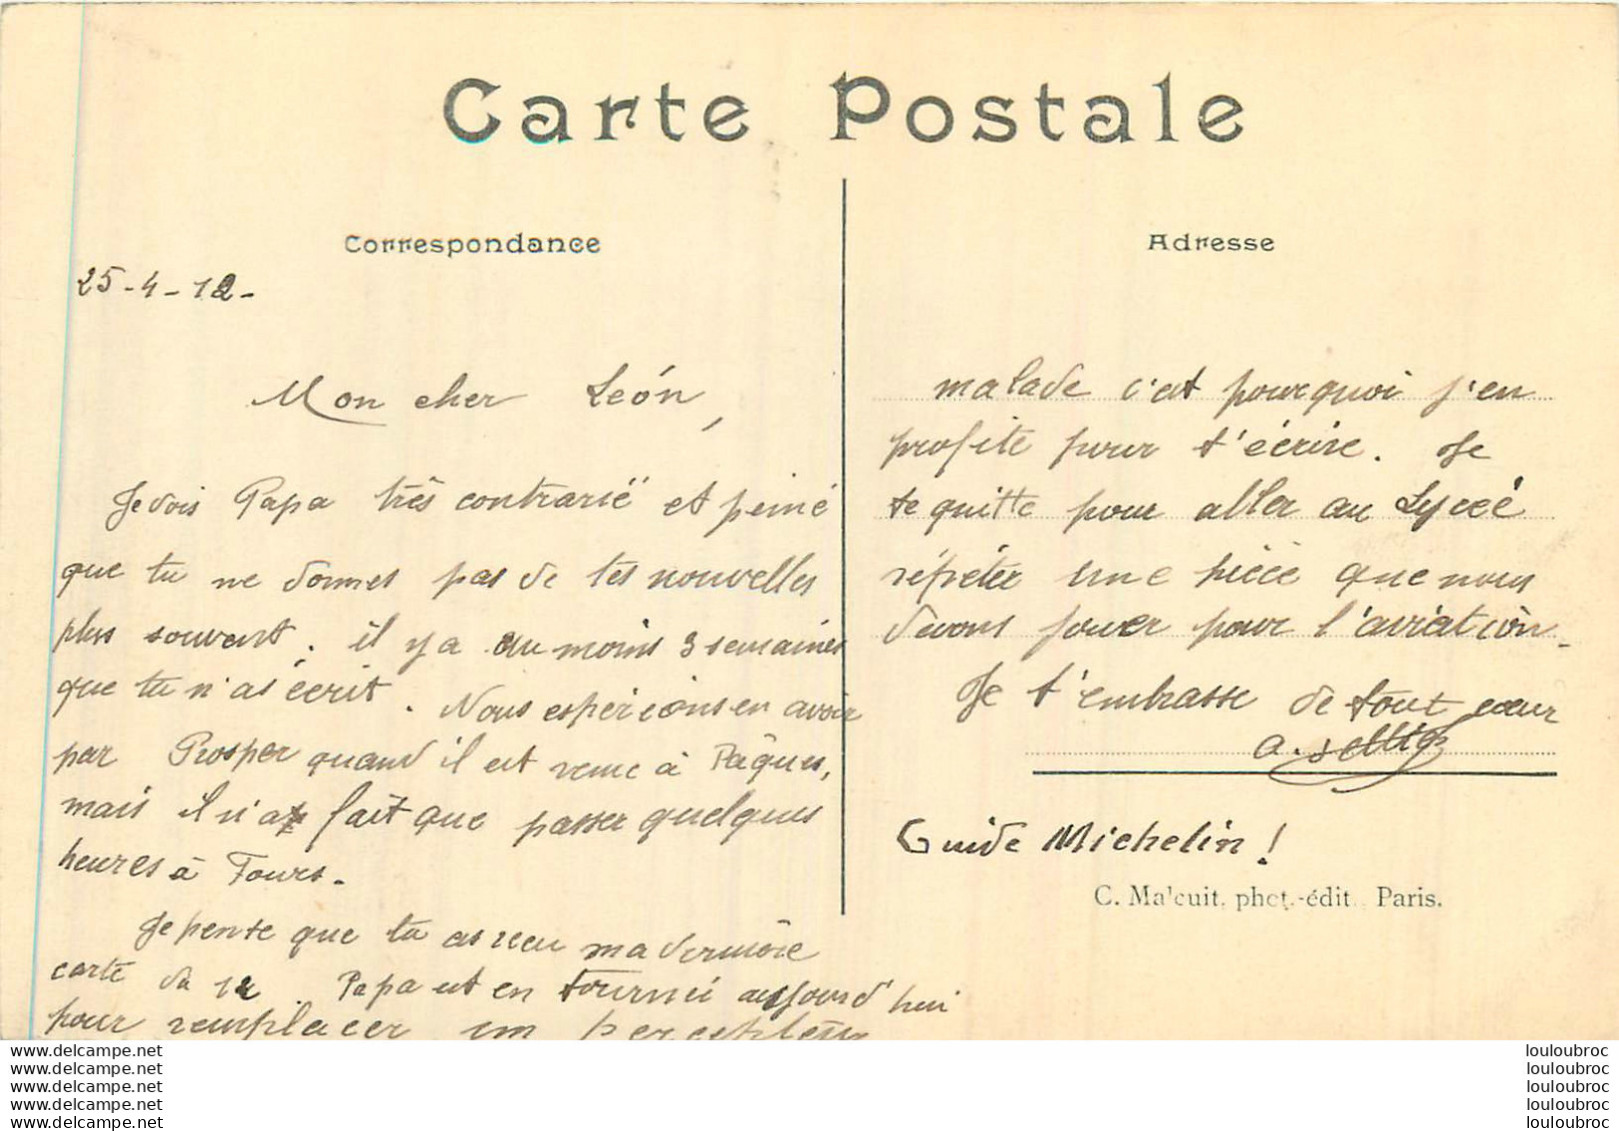 Carte Postale
Correspondance
25-4-12-
Mon cher León,
Je vois Papa très contrarié et peiné
que tu ne donnes pas de tes nouvelles
plus souvent. il y a au moins 3 semaines
que tu n'as écrit. Nous espérions en avoir
par Prosper quand il est venu à Pâques,
mais il n'a fait que passer quelques
heures à Tours.
Je pense que tu as reçu ma dernière
carte du 12. Papa est en tournée aujourd'hui
pour remplacer un percepteur
Adresse
malade c'est pourquoi j'en
profite pour t'écrire. Je
te quitte pour aller au Lycée
répéter une pièce que nous
devons jouer pour l'aviation.
Je t'embrasse de tout cœur
a.
Guide Michelin!
C. Malcuit, phot.-édit. Paris.
www.delcampe.net
www.delcampe.net
www.delcampe.net
www.delcampe.net
www.delcampe.net
louloubroc
louloubroc
louloubroc
louloubroc
louloubroc